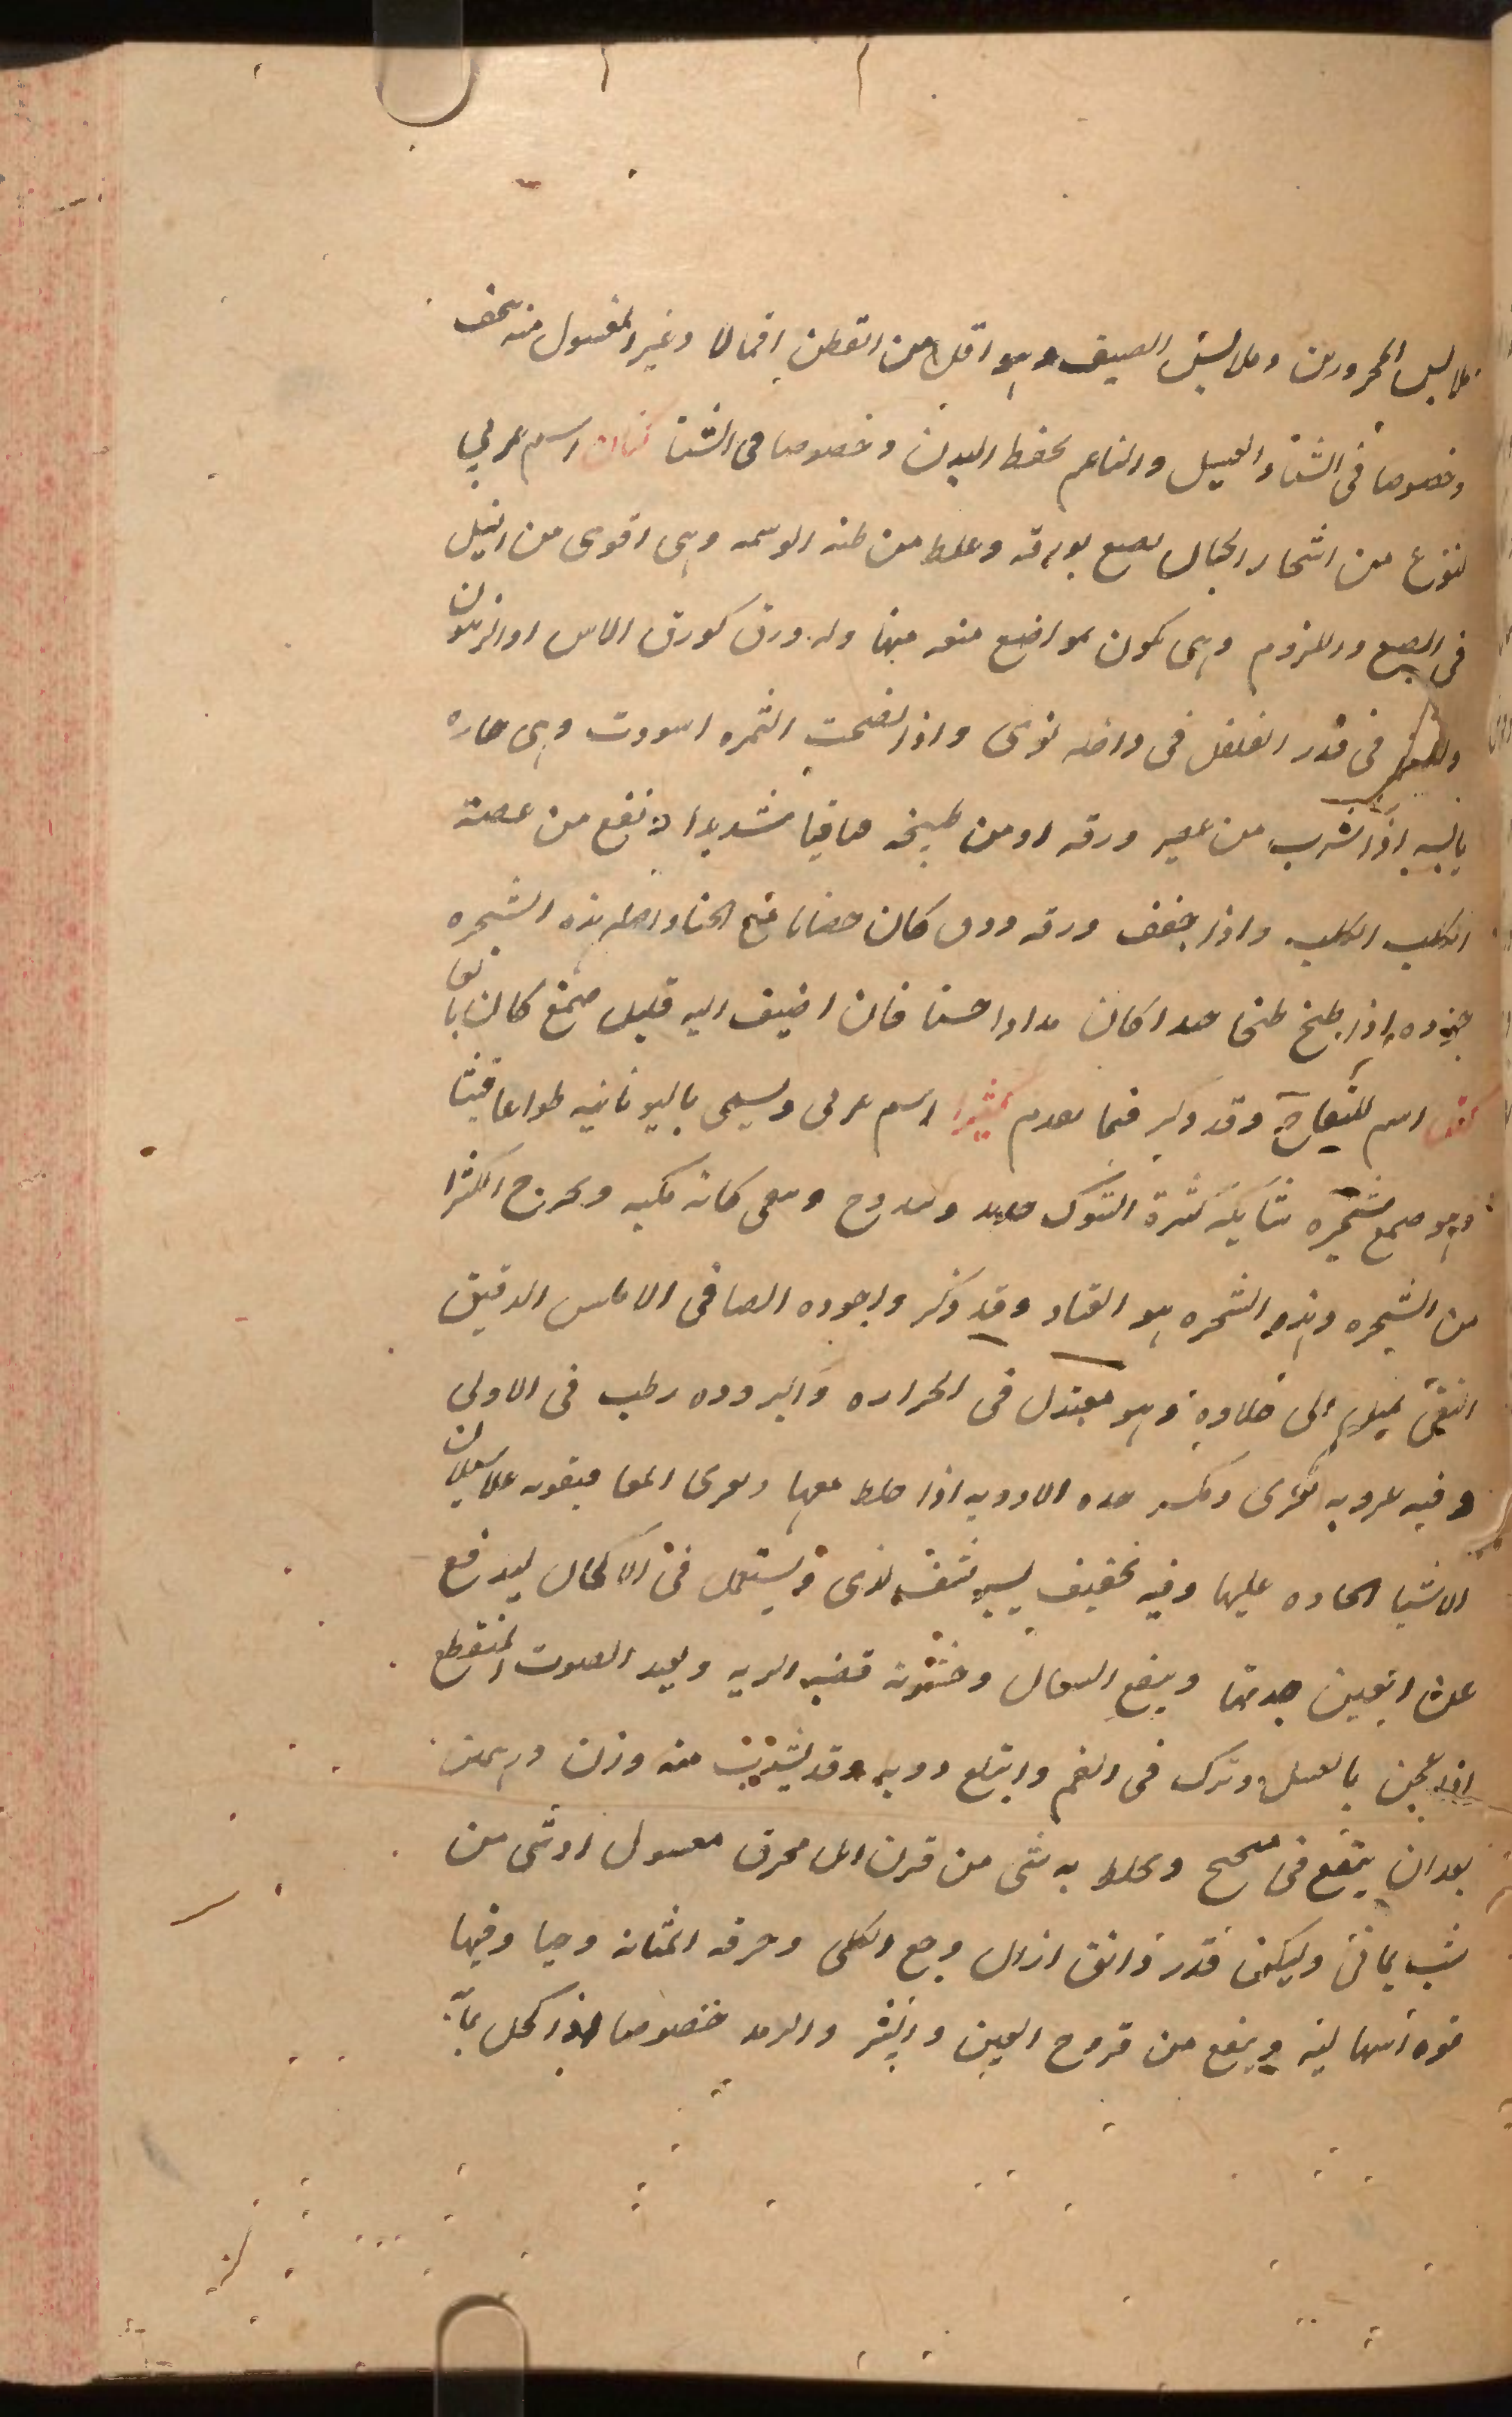 ملابس المحرورين وملابس الصيف وهو اقل من القطن اقمالا وغير المغسول منه يجفف
وخصوصا فى الشتاء الغسيل والناعم يحفظ البدن وخصوصا فى الشتا كتان اسم عربي
لنوع من اشجار الجبال يصبغ بورقه وغلط من ظنه الوسمه وهى اقوى من النيل
فى الصبغ واللزوم وهى تكون بمواضع منها وله ورق كورق الاس او الزيتون
فى قدر الفلفل فى داخله نوى واذا نضجت الثمره اسودت وهى حاره
يابسه اذا شرب من عصير ورقه او من طبيخه قيا شديدا ونفع من عضة
الكلب الكلب واذا جفف ورقه ودق كان خضابا مع الحنا واصل هذه الشجره
اذا طبخ طبخا جيدا كان مدادا حسنا فان اضيف اليه قليل صمغ كان
اسم للتفاح وقد ذكر فيما تقدم كثيرا اسم عربى ويسمى باليونانيه طراغاقينا
وهو صمغ شجره شايكه كثرة الشوك ويخرج الكثيرا
من الشجره وهذه الشجره هو القتاد وقد ذكر واجوده الصافى الاملس الدقيق
النقى يميل الى حلاوة وهو معتدل فى الحراره والبروده رطب فى الاولى
وفيه لزوجه تغرى وتكسر حدة الادويه اذا خلط معها
الاشيا الحاده عليها وفيه تجفيف يسير ويستعمل فى الاكحال ليدفع
عن العين حدتها وينفع السعال وخشونة قصبه الريه ويعيد الصوت المنقطع
اذا عجن بالعسل وترك فى الفم وابتلع ذوبه وقد يشرب منه وزن درهمين
بعد ان ينقع فى ويخلط به شى من قرن ايل محرق مغسول او شى من
شب يمانى وليكن قدر دانق ازال وجع الكلى وحرقه المثانه وحيا وفيها
قوه اسهاليه وينفع من قروح العين والبثر والرمد خصوصا اذا كحل بماء